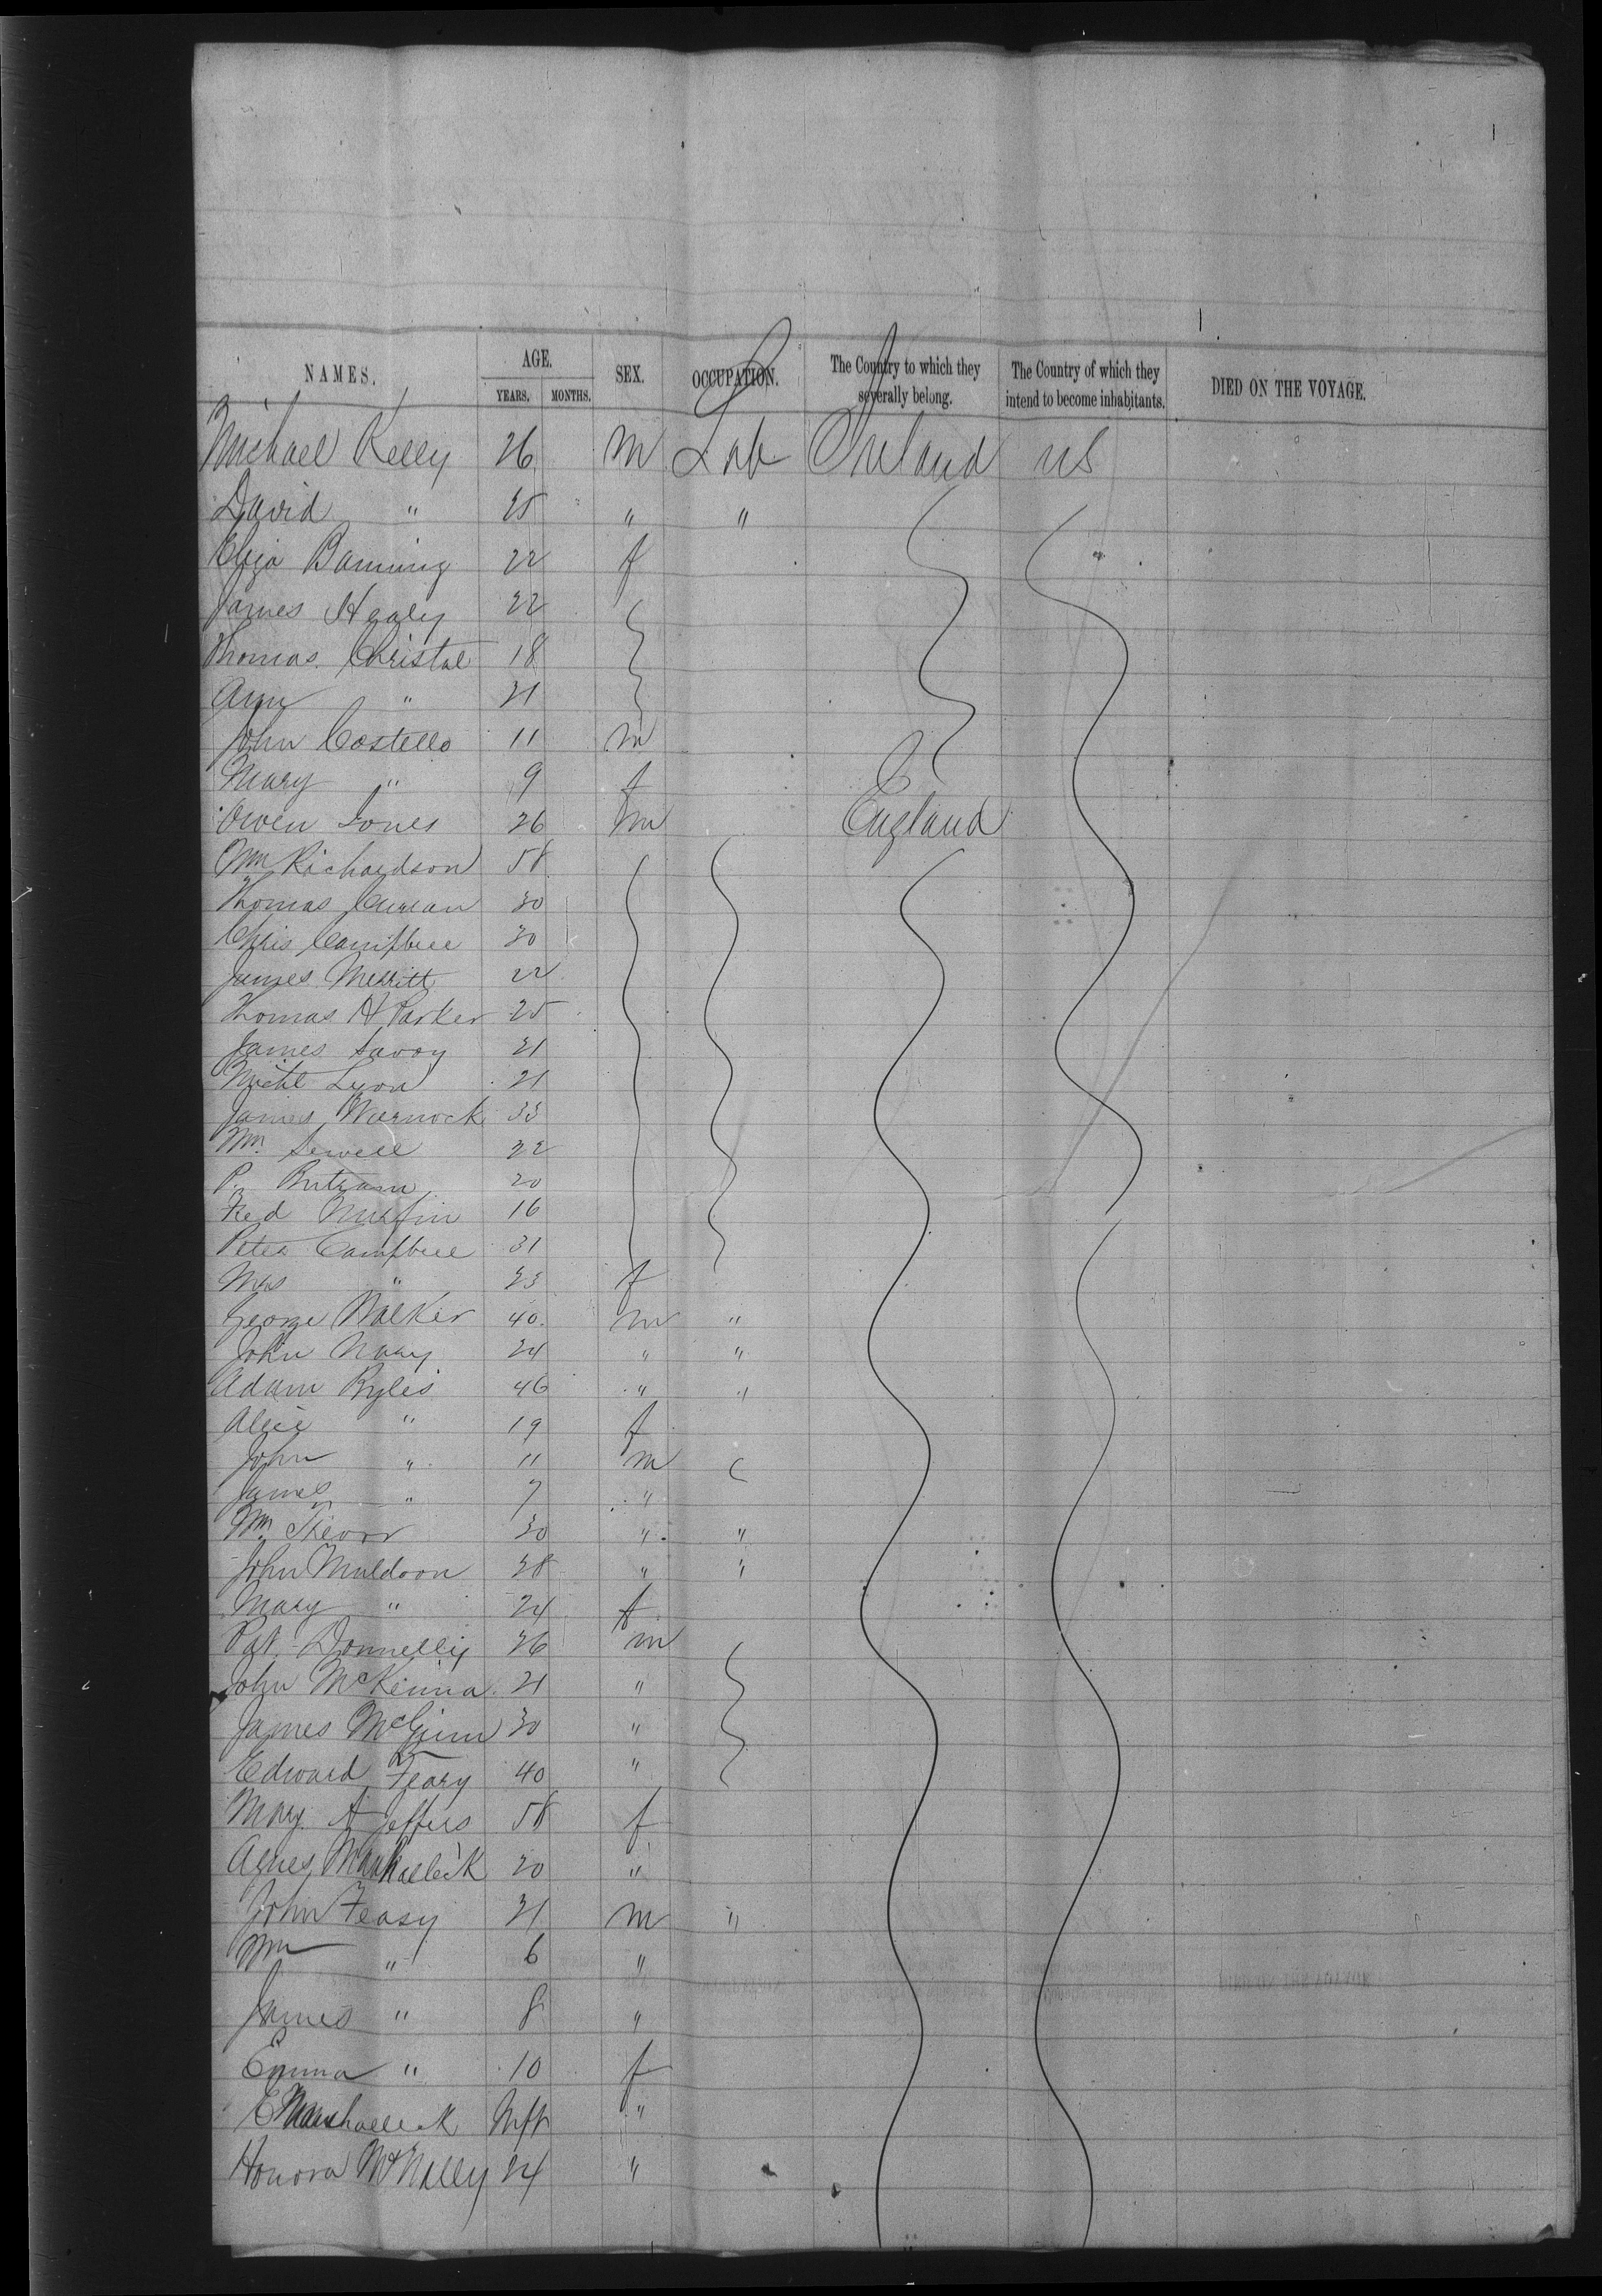 NAMES. AGE. SEX. OCCUPATION. The Country to which they severally belong. The Country of which they intend to become inhabitants. DIED ON THE VOYAGE.
YEARS. MONTHS.
Michael Kelly 26 m Lab Ireland US
David " 25 " "
Eliza Banning 22 f
James Healy 22
Thomas Christal 18
Ann " 21
John Costello 11 m
Mary " 9 f
Owen Jones 26 m England
Wm Richardson 58
Thomas Curran 30
Chris Campbell 30
James Merritt 22
Thomas H Parker 25
James Savoy 21
Michl Lyon 21
James Warnock 33
Wm. Sewell 22
P. 20
Fred 16
Peter Campbell 31
Mrs " 23 f
George Walker 40 m "
John Nary 24 " "
Adam Ryles 46 " "
Alice " 19 f
John " 11 m
James " 7 "
Wm. Trevor 30 " "
John Muldoon 28 " "
Mary " 24 f
Pat. Donnelly 26 m
John McKenna 21 "
James McGinn 30 "
Edward Feary 40 "
Mary A Jeffers 58 f
Agnes 20 "
John Feasy 31 m "
Wm " 6 "
James " 8 "
Emma " 10 f
E Marshalleck Inft "
Honora McNally 24 "